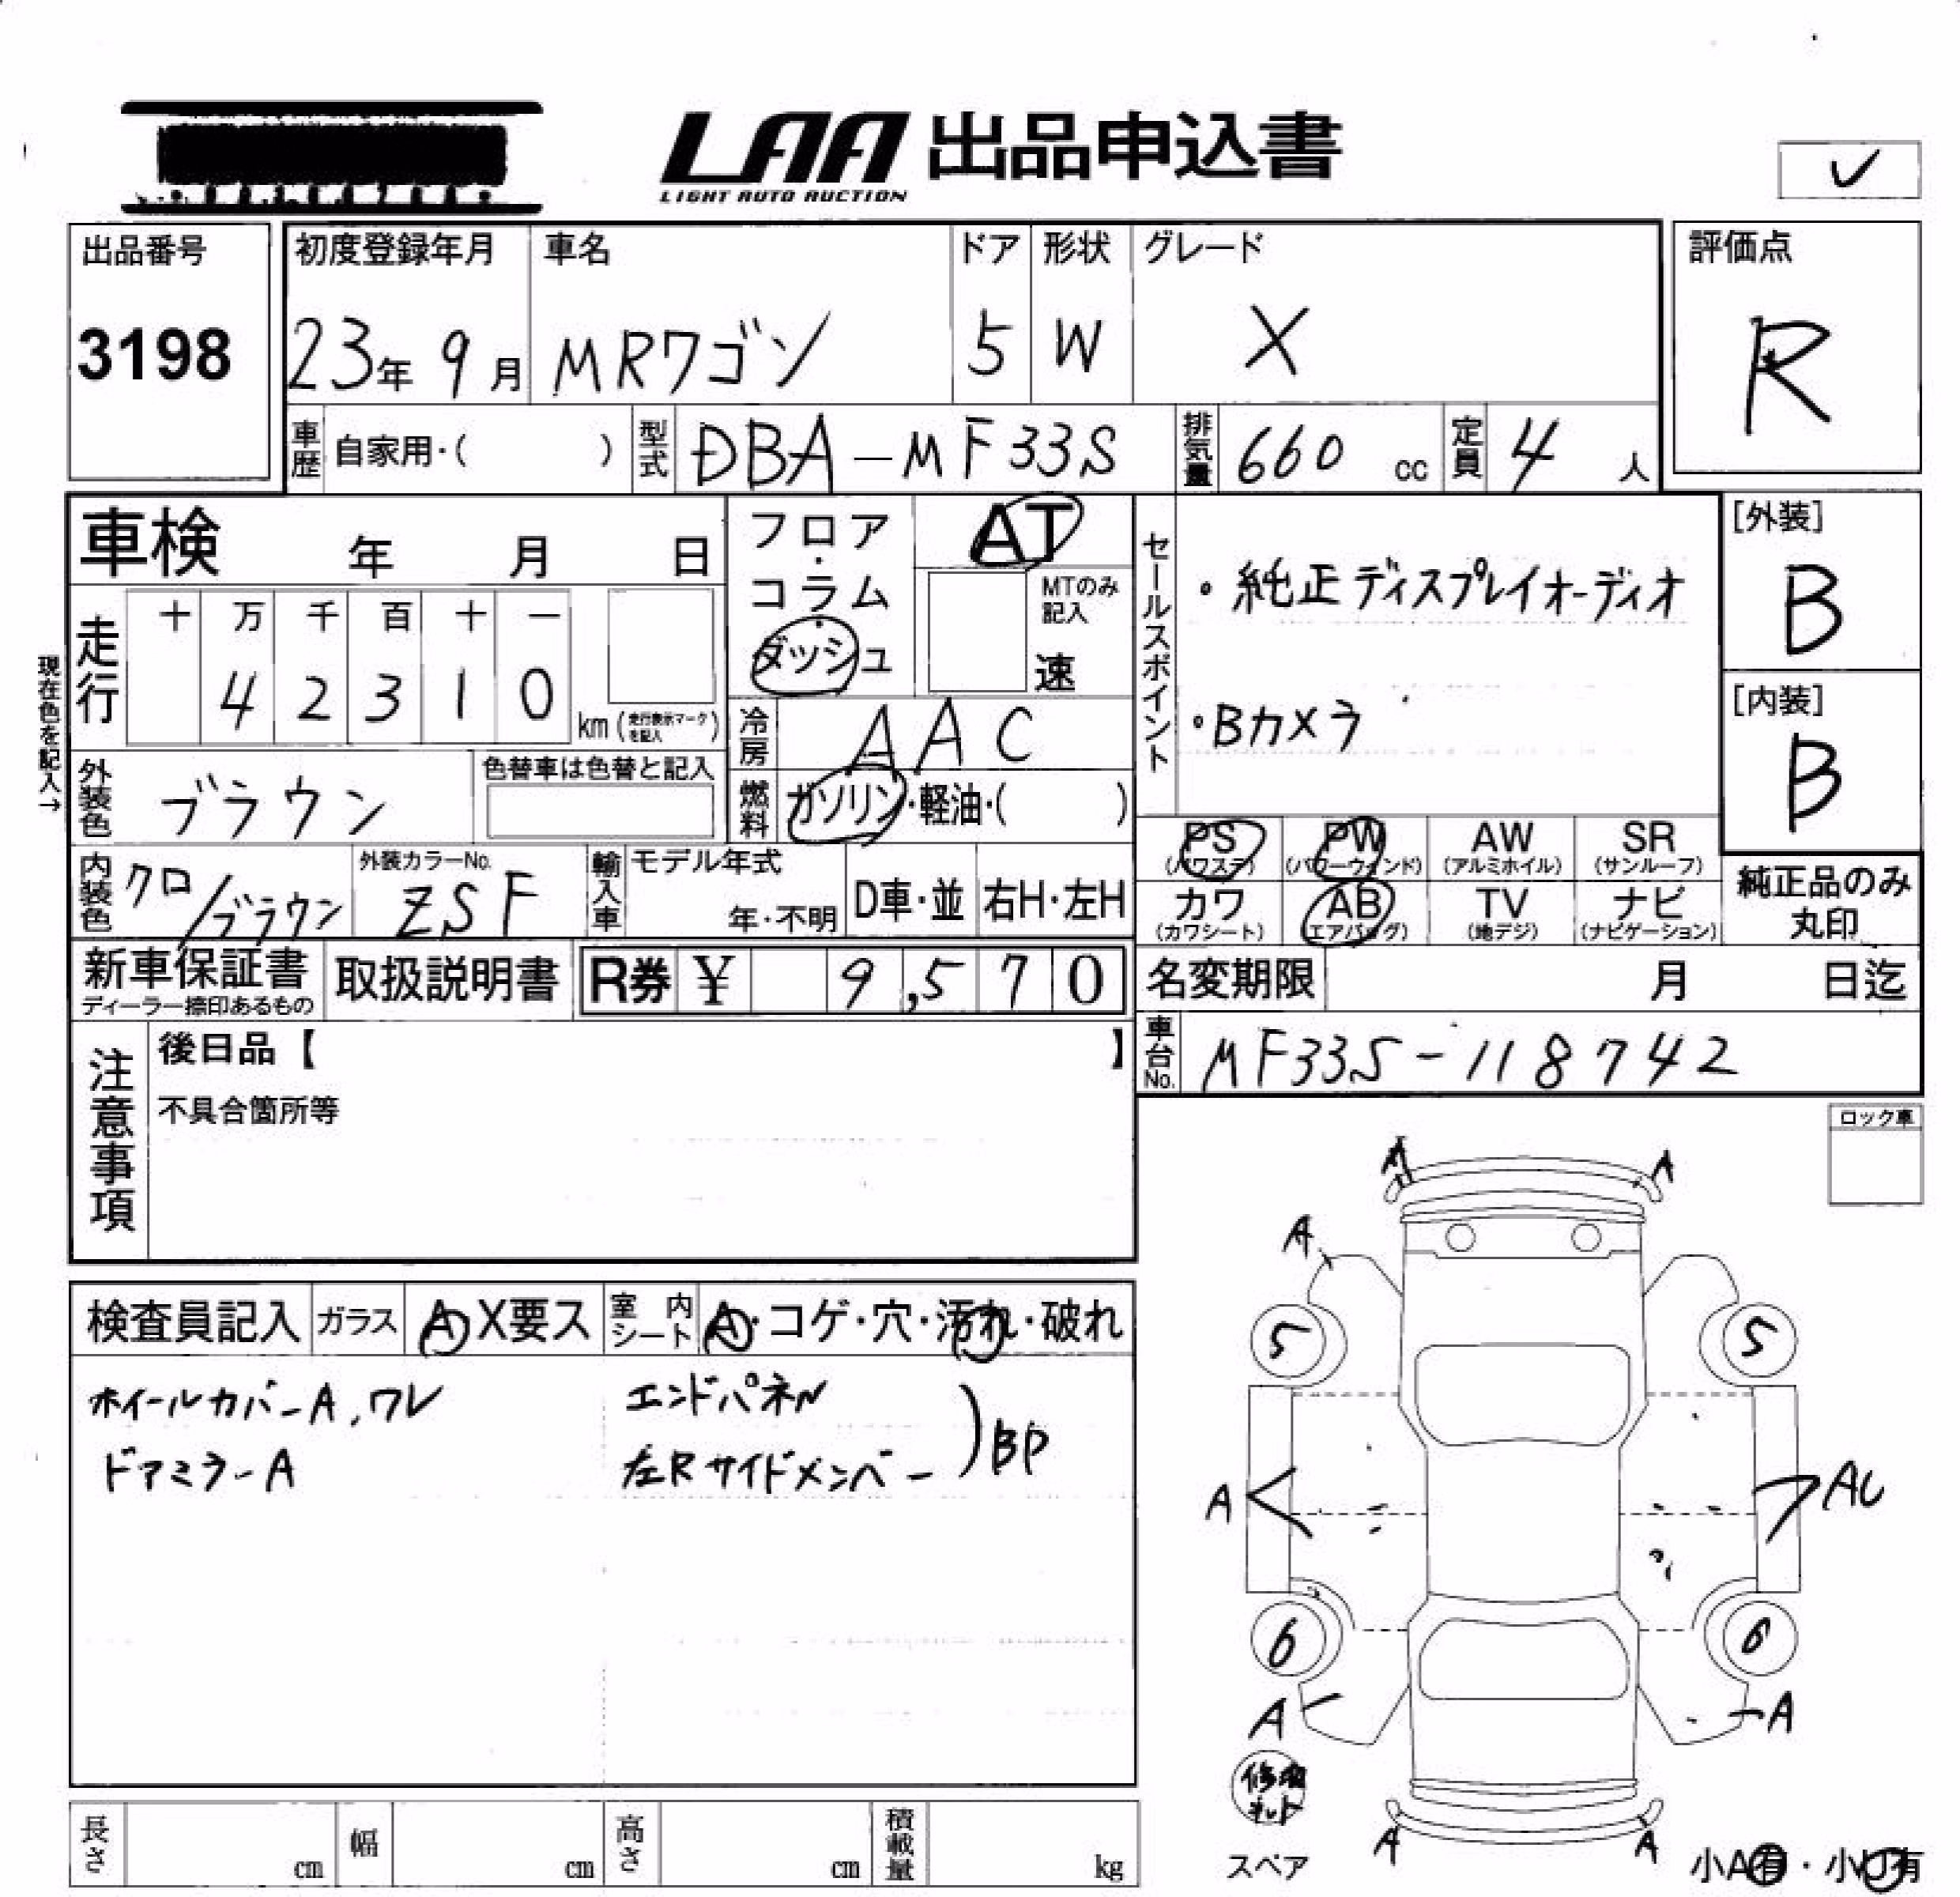 LAA 出品申込書
LIGHT AUTO AUCTION
✓
出品番号
3198
初度登録年月
23年 9月
車名
MRワゴン
ドア
5
形状
W
グレード
X
評価点
R
車歴
自家用・( )
型式
DBA-MF33S
排気量
660 cc
定員
4 人
車検 年 月 日
現在色を記入→
走行
十 万 千 百 十 一
4 2 3 1 0
km (走行表示マークを記入)
フロア・コラム・ダッシュ
AT
MTのみ記入
速
冷房
AAC
燃料
ガソリン・軽油・( )
セールスポイント
・純正ディスプレイオーディオ
・Bカメラ
[外装]
B
[内装]
B
外装色
ブラウン
色替車は色替と記入
内装色
クロ/ブラウン
外装カラーNo.
ZSF
輸入車
モデル年式
年・不明
D車・並
右H・左H
PS (パワステ)
PW (パワーウィンド)
AW (アルミホイル)
SR (サンルーフ)
カワ (カワシート)
AB (エアバッグ)
TV (地デジ)
ナビ (ナビゲーション)
純正品のみ丸印
新車保証書
ディーラー捺印あるもの
取扱説明書
R券 ¥ 9,570
名変期限 月 日迄
車台No.
MF33S-118742
注意事項
後日品【 】
不具合箇所等
ロック車
検査員記入
ガラス
A X要ス
室内シート
A・コゲ・穴・汚れ・破れ
ホイールカバーA,ワレ
ドアミラーA
エンドパネル
左Rサイドメンバー
)BP
A A
A
5 5
A AU
6 6
A A
修理キット
スペア
A A
小A有・小U有
長さ cm
幅 cm
高さ cm
積載量 kg